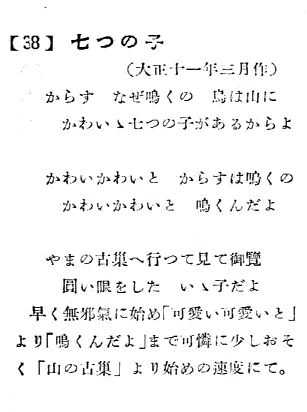 【38】 七つの子
（大正十一年三月作）
からす なぜ鳴くの 烏は山に
かわいゝ七つの子があるからよ
かわいかわいと からすは鳴くの
かわいかわいと 鳴くんだよ
やまの古巣へ行つて見て御覧
圓い眼をした いゝ子だよ
早く無邪氣に始め「可愛い可愛いと」
より「鳴くんだよ」まで可憐に少しおそ
く「山の古巣」より始めの速度にて。